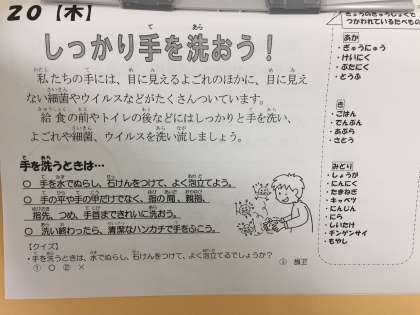 20【木】
しっかり手を洗おう！
私たちの手には、目に見えるよごれのほかに、目に見え
ない細菌やウイルスなどがたくさんついています。
給食の前やトイレの後などにはしっかりと手を洗い、
よごれや細菌、ウイルスを洗い流しましょう。
手を洗うときは…
○ 手を水でぬらし、石けんをつけて、よく泡立てよう。
○ 手の平や手の甲だけでなく、指の間、親指、
指先、つめ、手首まできれいに洗おう。
○ 洗い終わったら、清潔なハンカチで手をふこう。
【クイズ】
手を洗うときは、水でぬらし、石けんをつけて、よく泡立てるでしょうか？
① ○ ② ×
きょうのきゅうしょくに
つかわれているたべもの
あか
・ぎゅうにゅう
・けいにく
・ぶたにく
・とうふ
き
・ごはん
・でんぷん
・あぶら
・さとう
みどり
・しょうが
・にんにく
・たまねぎ
・キャベツ
・にんじん
・にら
・しいたけ
・チンゲンサイ
・もやし